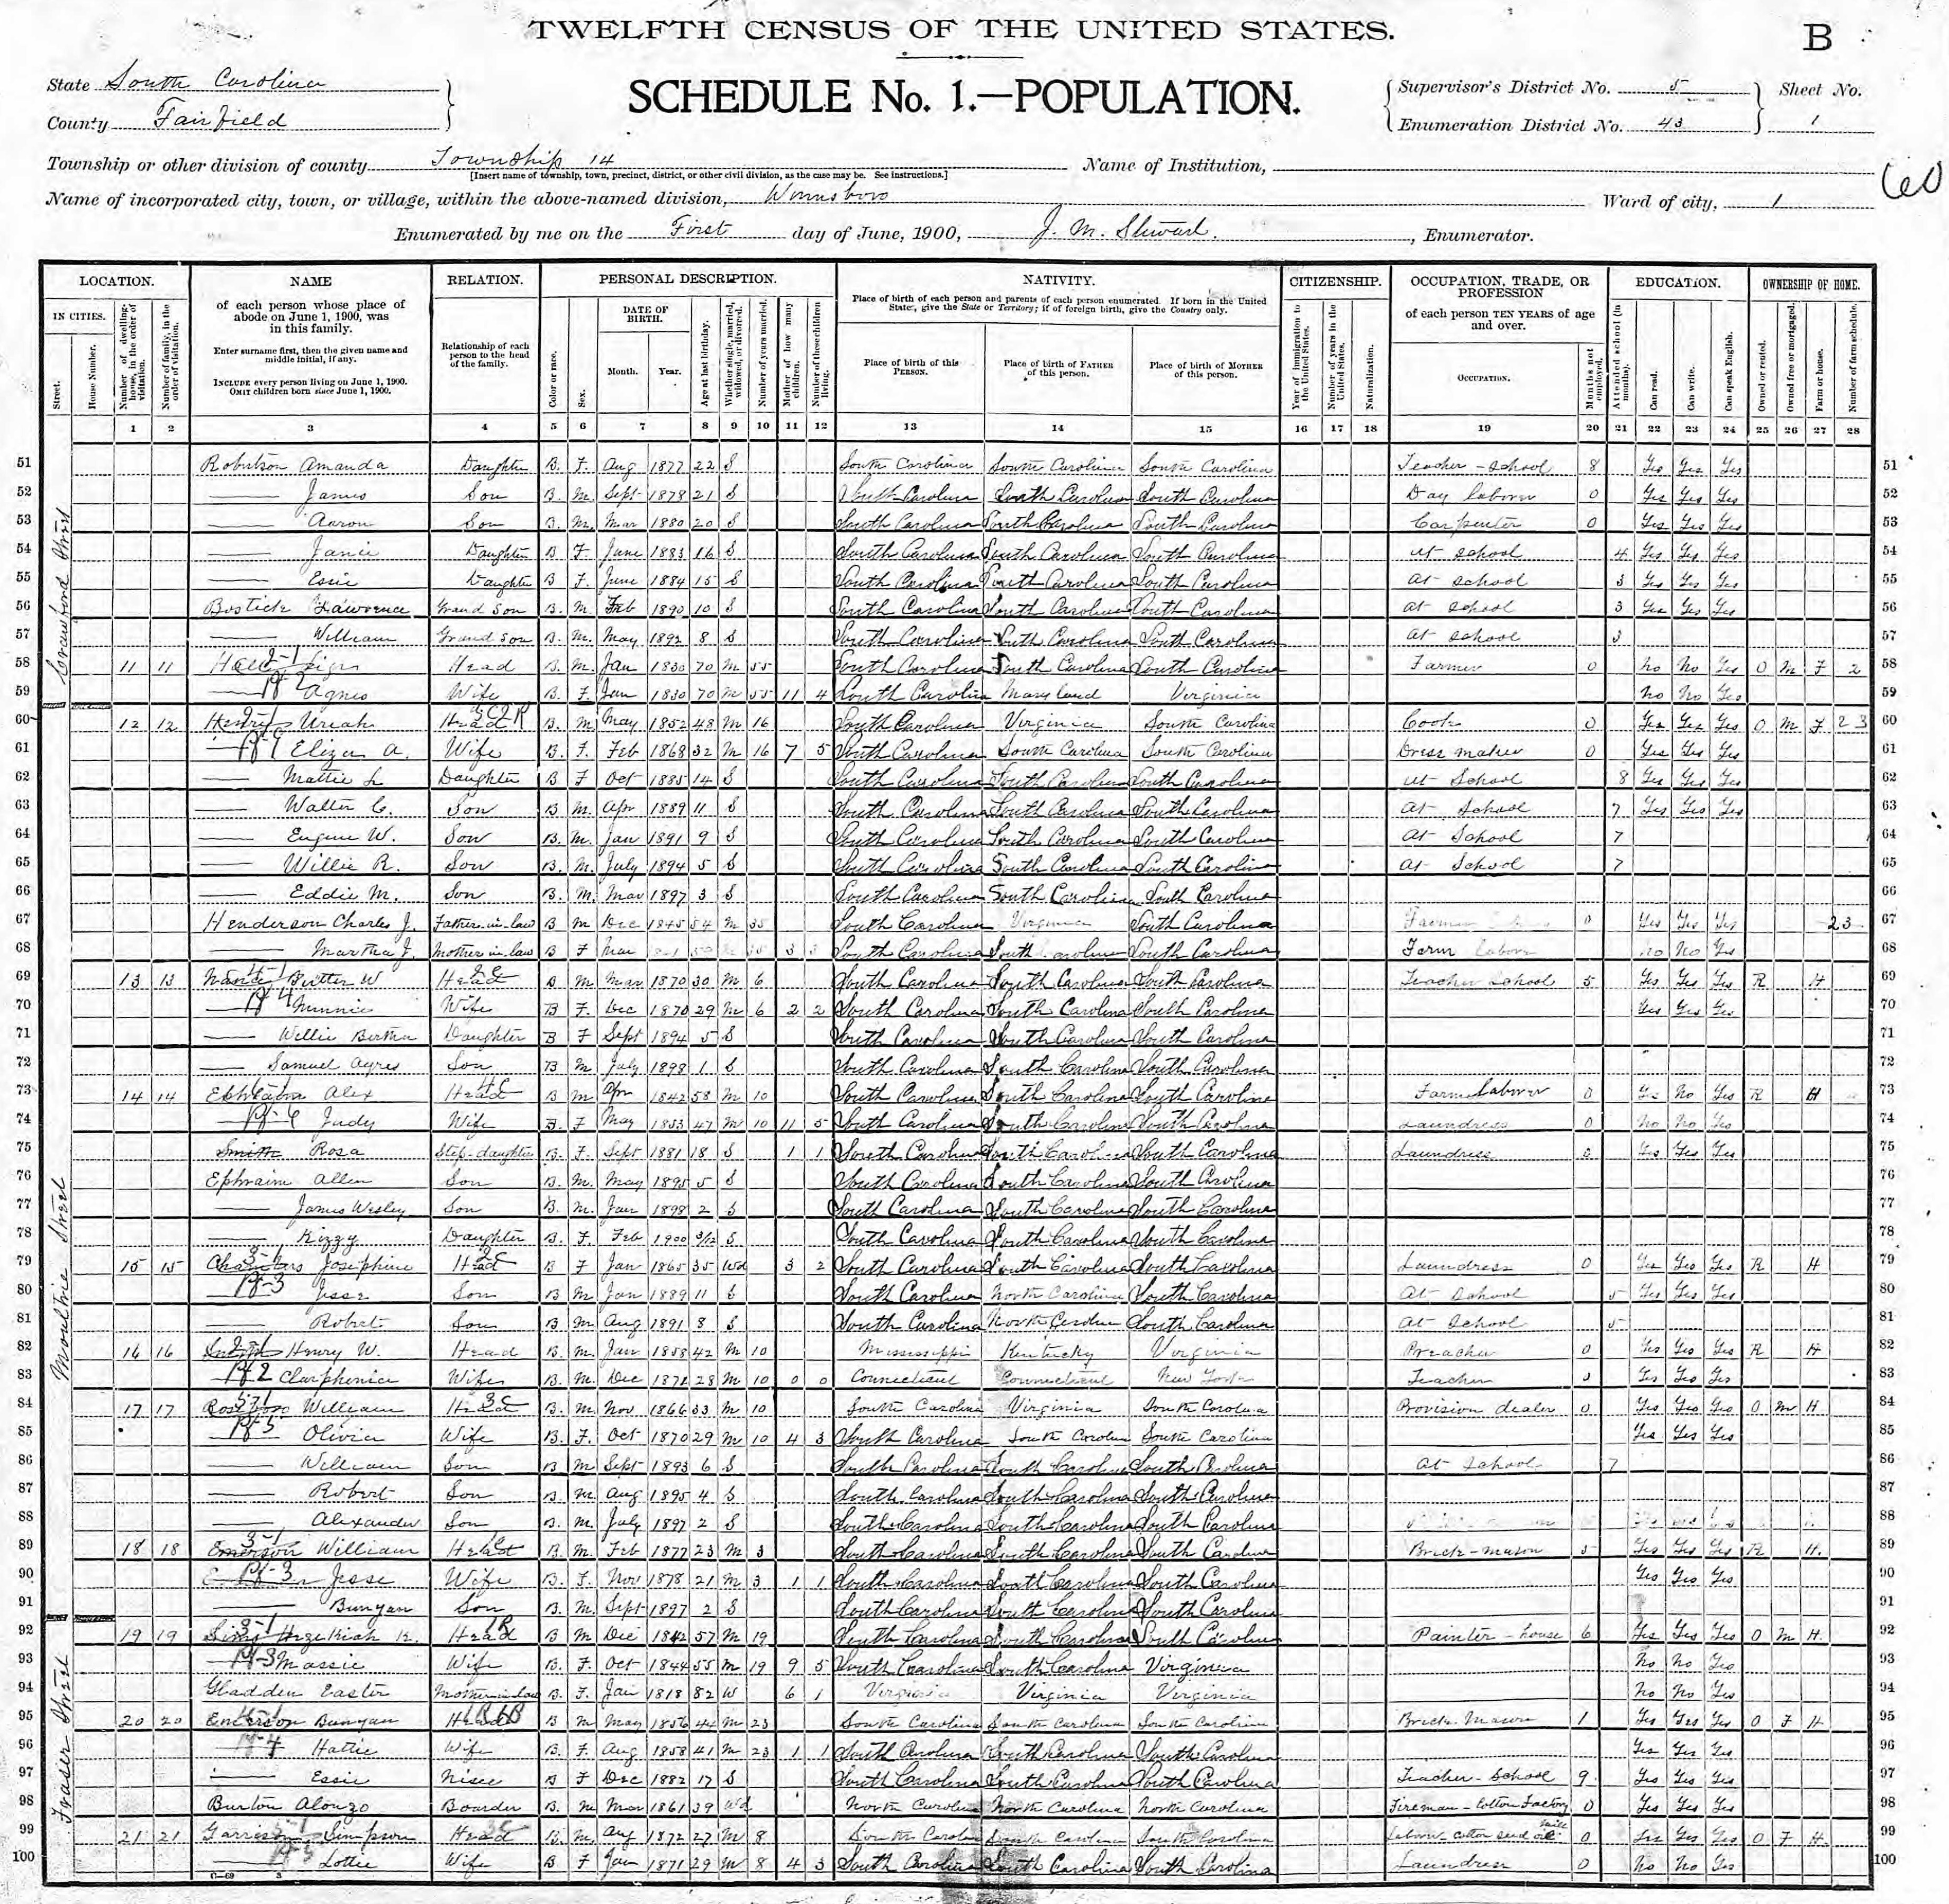 TWELFTH CENSUS OF THE UNITED STATES.
B
State South Carolina
County Fairfield
SCHEDULE No. 1.—POPULATION.
Supervisor's District No. 5
Enumeration District No. 43
Sheet No.
1
Township or other division of county Township 14
[Insert name of township, town, precinct, district, or other civil division, as the case may be. See instructions.]
Name of Institution,
60
Name of incorporated city, town, or village, within the above-named division, Winnsboro
Ward of city, 1
Enumerated by me on the First day of June, 1900, J. M. Stewart, Enumerator.
LOCATION. NAME RELATION. PERSONAL DESCRIPTION. NATIVITY. CITIZENSHIP. OCCUPATION, TRADE, OR PROFESSION EDUCATION. OWNERSHIP OF HOME.
IN CITIES.
Street.
House Number.
Number of dwelling-house, in the order of visitation.
Number of family, in the order of visitation.
of each person whose place of abode on June 1, 1900, was in this family.
Enter surname first, then the given name and middle initial, if any.
INCLUDE every person living on June 1, 1900.
OMIT children born since June 1, 1900.
Relationship of each person to the head of the family.
Color or race.
Sex.
DATE OF BIRTH.
Month. Year.
Age at last birthday.
Whether single, married, widowed, or divorced.
Number of years married.
Mother of how many children.
Number of these children living.
Place of birth of each person and parents of each person enumerated. If born in the United States, give the State or Territory; if of foreign birth, give the Country only.
Place of birth of this PERSON.
Place of birth of FATHER of this person.
Place of birth of MOTHER of this person.
Year of immigration to the United States.
Number of years in the United States.
Naturalization.
of each person TEN YEARS of age and over.
OCCUPATION.
Months not employed.
Attended school (in months).
Can read.
Can write.
Can speak English.
Owned or rented.
Owned free or mortgaged.
Farm or house.
Number of farm schedule.
1 2 3 4 5 6 7 8 9 10 11 12 13 14 15 16 17 18 19 20 21 22 23 24 25 26 27 28
Crawford Street
51 Robertson Amanda Daughter B. F. Aug 1877 22 S South Carolina South Carolina South Carolina Teacher - School 8 Yes Yes Yes 51
52 James Son B. M. Sept 1878 21 S South Carolina South Carolina South Carolina Day laborer 0 Yes Yes Yes 52
53 Aaron Son B. M. Mar 1880 20 S South Carolina South Carolina South Carolina Carpenter 0 Yes Yes Yes 53
54 Janie Daughter B F. June 1883 16 S South Carolina South Carolina South Carolina at school 4 Yes Yes Yes 54
55 Essie Daughter B F. June 1884 15 S South Carolina South Carolina South Carolina at school 3 Yes Yes Yes 55
56 Bostick Lawrence Grand Son B. M. Feb 1890 10 S South Carolina South Carolina South Carolina at school 3 Yes Yes Yes 56
57 William Grand Son B. M. May 1892 8 S South Carolina South Carolina South Carolina at school 3 57
58 11 11 Head B. M. Jan 1830 70 M 55 South Carolina South Carolina South Carolina Farmer 0 No No Yes O M F 2 58
59 Agnes Wife B. F. Jan 1830 70 M 55 11 4 South Carolina Maryland Virginia No No Yes 59
60 12 12 Henry Uriah Head B. M. May 1852 48 M 16 South Carolina Virginia South Carolina Cook 0 Yes Yes Yes O M F 23 60
61 Eliza A. Wife B. F. Feb 1868 32 M 16 7 5 South Carolina South Carolina South Carolina Dress maker 0 Yes Yes Yes 61
62 Mattie L Daughter B F Oct 1885 14 S South Carolina South Carolina South Carolina at School 8 Yes Yes Yes 62
63 Walter C. Son B M. Apr 1889 11 S South Carolina South Carolina South Carolina At School 7 Yes Yes Yes 63
64 Eugene W. Son B. M. Jan 1891 9 S South Carolina South Carolina South Carolina At School 7 64
65 Willie R. Son B. M. July 1894 5 S South Carolina South Carolina South Carolina at School 7 65
66 Eddie M. Son B. M. Mar 1897 3 S South Carolina South Carolina South Carolina 66
67 Henderson Charles J. Father-in-law B M Dec 1845 54 M 35 South Carolina Virginia South Carolina Farmer 0 Yes Yes Yes 23 67
68 Martha J. Mother in law B F Mar 3 3 South Carolina South Carolina South Carolina Farm labor No No Yes 68
69 13 13 Nance Butler W Head B M Mar 1870 30 M 6 South Carolina South Carolina South Carolina Teacher School 5 Yes Yes Yes R H 69
70 Minnie Wife B F. Dec 1870 29 M 6 2 2 South Carolina South Carolina South Carolina Yes Yes Yes 70
71 Willie Bertha Daughter B F Sept 1894 5 S South Carolina South Carolina South Carolina 71
72 Samuel Ayres Son B M July 1898 1 S South Carolina South Carolina South Carolina 72
Moultrie Street
73 14 14 Ephraim Alex Head B M Apr 1842 58 M 10 South Carolina South Carolina South Carolina Farm Laborer 0 Yes No Yes R H 73
74 Judy Wife B. F May 1853 47 M 10 11 5 South Carolina South Carolina South Carolina Laundress 0 No No Yes 74
75 Smith Rosa Step-daughter B. F. Sept 1881 18 S 1 1 South Carolina South Carolina South Carolina Laundress 0 Yes Yes Yes 75
76 Ephraim Allen Son B. M. May 1895 5 S South Carolina South Carolina South Carolina 76
77 James Wesley Son B. M. Jan 1898 2 S South Carolina South Carolina South Carolina 77
78 Kizzy Daughter B. F. Feb 1900 3/12 S South Carolina South Carolina South Carolina 78
79 15 15 Chambers Josephine Head B F Jan 1865 35 Wd 3 2 South Carolina South Carolina South Carolina Laundress 0 Yes Yes Yes R H 79
80 Jesse Son B M Jan 1889 11 S South Carolina North Carolina South Carolina At School 5 Yes Yes Yes 80
81 Robert Son B M Aug 1891 8 S South Carolina North Carolina South Carolina At School 5 81
82 16 16 Henry W. Head B. M. Jan 1858 42 M 10 Mississippi Kentucky Virginia Preacher 0 Yes Yes Yes R H 82
83 Clarphenia Wife B. M. Dec 1871 28 M 10 0 0 Connecticut Connecticut New York Teacher Yes Yes Yes 83
84 17 17 William Head B. M. Nov 1866 33 M 10 South Carolina Virginia South Carolina Provision dealer 0 Yes Yes Yes O M H 84
85 Olivia Wife B. F. Oct 1870 29 M 10 4 3 South Carolina South Carolina South Carolina Yes Yes Yes 85
86 William Son B M Sept 1893 6 S South Carolina South Carolina South Carolina at School 7 86
87 Robert Son B. M. Aug 1895 4 S South Carolina South Carolina South Carolina 87
88 Alexander Son B. M. July 1897 2 S South Carolina South Carolina South Carolina 88
89 18 18 Emerson William Head B. M. Feb 1877 23 M 3 South Carolina South Carolina South Carolina Brick-mason 5 Yes Yes Yes R H. 89
90 Jesse Wife B. F. Nov 1878 21 M 3 1 1 South Carolina South Carolina South Carolina Yes Yes Yes 90
91 Bunyan Son B. M. Sept 1897 2 S South Carolina South Carolina South Carolina 91
Fraser Street
92 19 19 Sims Hezekiah K. Head B M Dec 1842 57 M 19 South Carolina South Carolina South Carolina Painter - house 6 Yes Yes Yes O M H. 92
93 Massie Wife B. F. Oct 1844 55 M 19 9 5 South Carolina South Carolina Virginia No No Yes 93
94 Gladden Easter Mother in law B. F. Jan 1818 82 W 6 1 Virginia Virginia Virginia No No Yes 94
95 20 20 Emerson Bunyan Head B M May 1856 44 M 23 South Carolina South Carolina South Carolina Brick Mason 1 Yes Yes Yes O F H 95
96 Hattie Wife B. F. Aug 1858 41 M 23 1 1 South Carolina South Carolina South Carolina Yes Yes Yes 96
97 Essie Niece B F Dec 1882 17 S South Carolina South Carolina South Carolina Teacher-School 9 Yes Yes Yes 97
98 Burton Alonzo Boarder B. M Mar 1861 39 Wd North Carolina North Carolina North Carolina Fireman - Cotton Factory 0 Yes Yes Yes 98
99 21 21 Garrison Simpson Head B. M. Aug 1872 27 M 8 South Carolina South Carolina South Carolina Labor cotton seed oil mill 0 Yes Yes Yes O F H 99
100 Lottie Wife B F Jan 1871 29 M 8 4 3 South Carolina South Carolina South Carolina Laundress 0 No No Yes 100